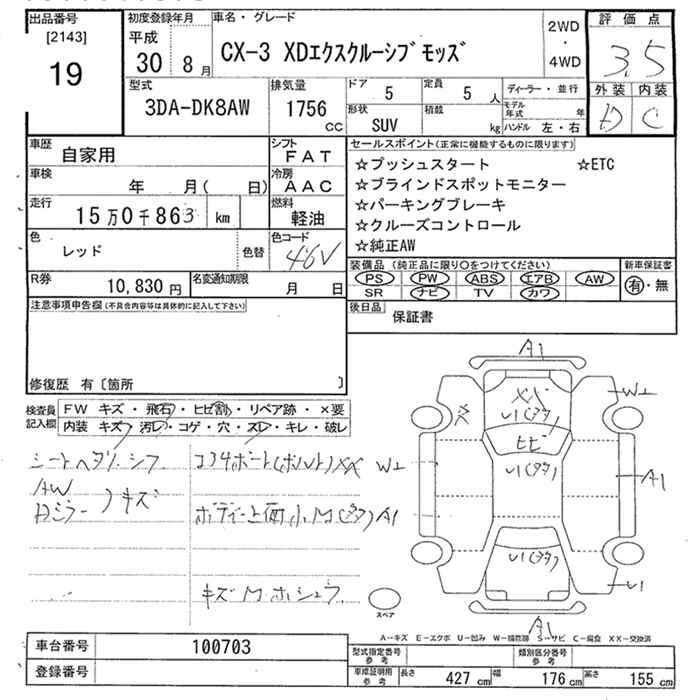 出品番号
[2143]
19
初度登録年月
平成
30 8 月
車名・グレード
CX-3 XDエクスクルーシブモッズ
2WD
・
4WD
評価点
3.5
外装 内装
D C
型式
3DA-DK8AW
排気量
1756
CC
ドア
5
定員
5 人
形状
SUV
積載
kg
ディーラー・並行
モデル年式 年
ハンドル 左・右
車歴
自家用
シフト
FAT
車検
年 月( 日)
冷房
AAC
走行
15万0千863 km
燃料
軽油
色
レッド
色替
色コード
46V
R券
10,830 円
名変通知期限
月 日
セールスポイント(正常に機能するものに限ります)
☆プッシュスタート ☆ETC
☆ブラインドスポットモニター
☆パーキングブレーキ
☆クルーズコントロール
☆純正AW
装備品 (純正品に限り○をつけてください)
PS PW ABS エアB AW
SR ナビ TV カワ
新車保証書
有・無
後日品
保証書
注意事項申告欄(不具合内容等は具体的に記入して下さい)
修復歴 有〔箇所 〕
検査員
記入欄
FW キズ・飛石・ヒビ割・リペア跡・×要
内装 キズ・汚レ・コゲ・穴・スレ・キレ・破レ
シートヘタリ・シワ
AW
ドミラー キズ
コアサポート(ボルト)XX
ボディー上面小M(多々)A1
キズ M ホシュウ
A1
XX
U1(多々)
ヒビ
U1(多々)
U1(多々)
A1
X
W2
W2
A1
U1
スペア
A-キズ E-エクボ U-凹み W-補修跡 S-サビ C-腐食 XX-交換済
車台番号
100703
登録番号
型式指定番号
参考
類別区分番号
参考
車検証明用
参考
長さ 427 cm
幅 176 cm
高さ 155 cm